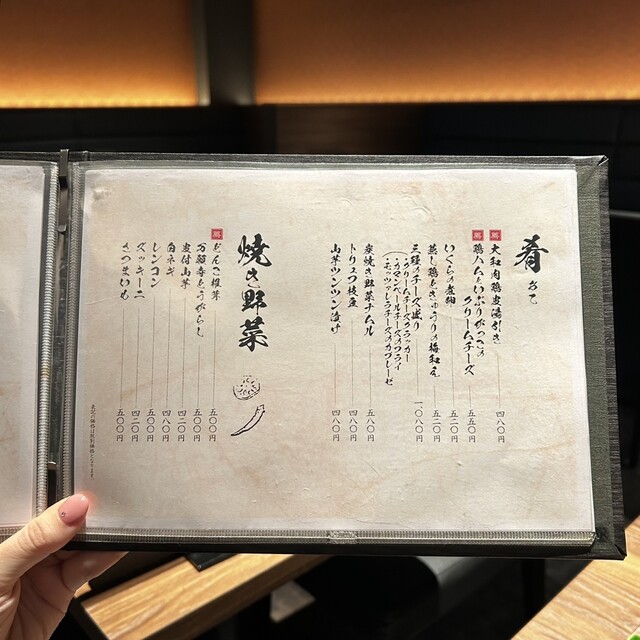 肴
萬 大和肉鶏皮湯引き 四八〇円
萬 鶏ハムといぶりがっこの
クリームチーズ 五五〇円
いくらの煮卵 五二〇円
蒸し鶏ときゅうりの梅和え 五二〇円
三種のチーズ盛り 一〇八〇円
・クリームチーズクラッカー
・カマンベールチーズのフライ
・モッツァレラチーズのカプレーゼ
炭焼き野菜ナムル 五八〇円
トリュフ枝豆 四八〇円
山芋ワンパン漬け 四八〇円
焼き野菜
萬 どんこ椎茸 五〇〇円
万願寺とうがらし 五〇〇円
皮付山芋 四二〇円
白ネギ 四八〇円
レンコン 五〇〇円
ズッキーニ 四二〇円
さつまいも 五〇〇円
表記の価格は税別価格となります。